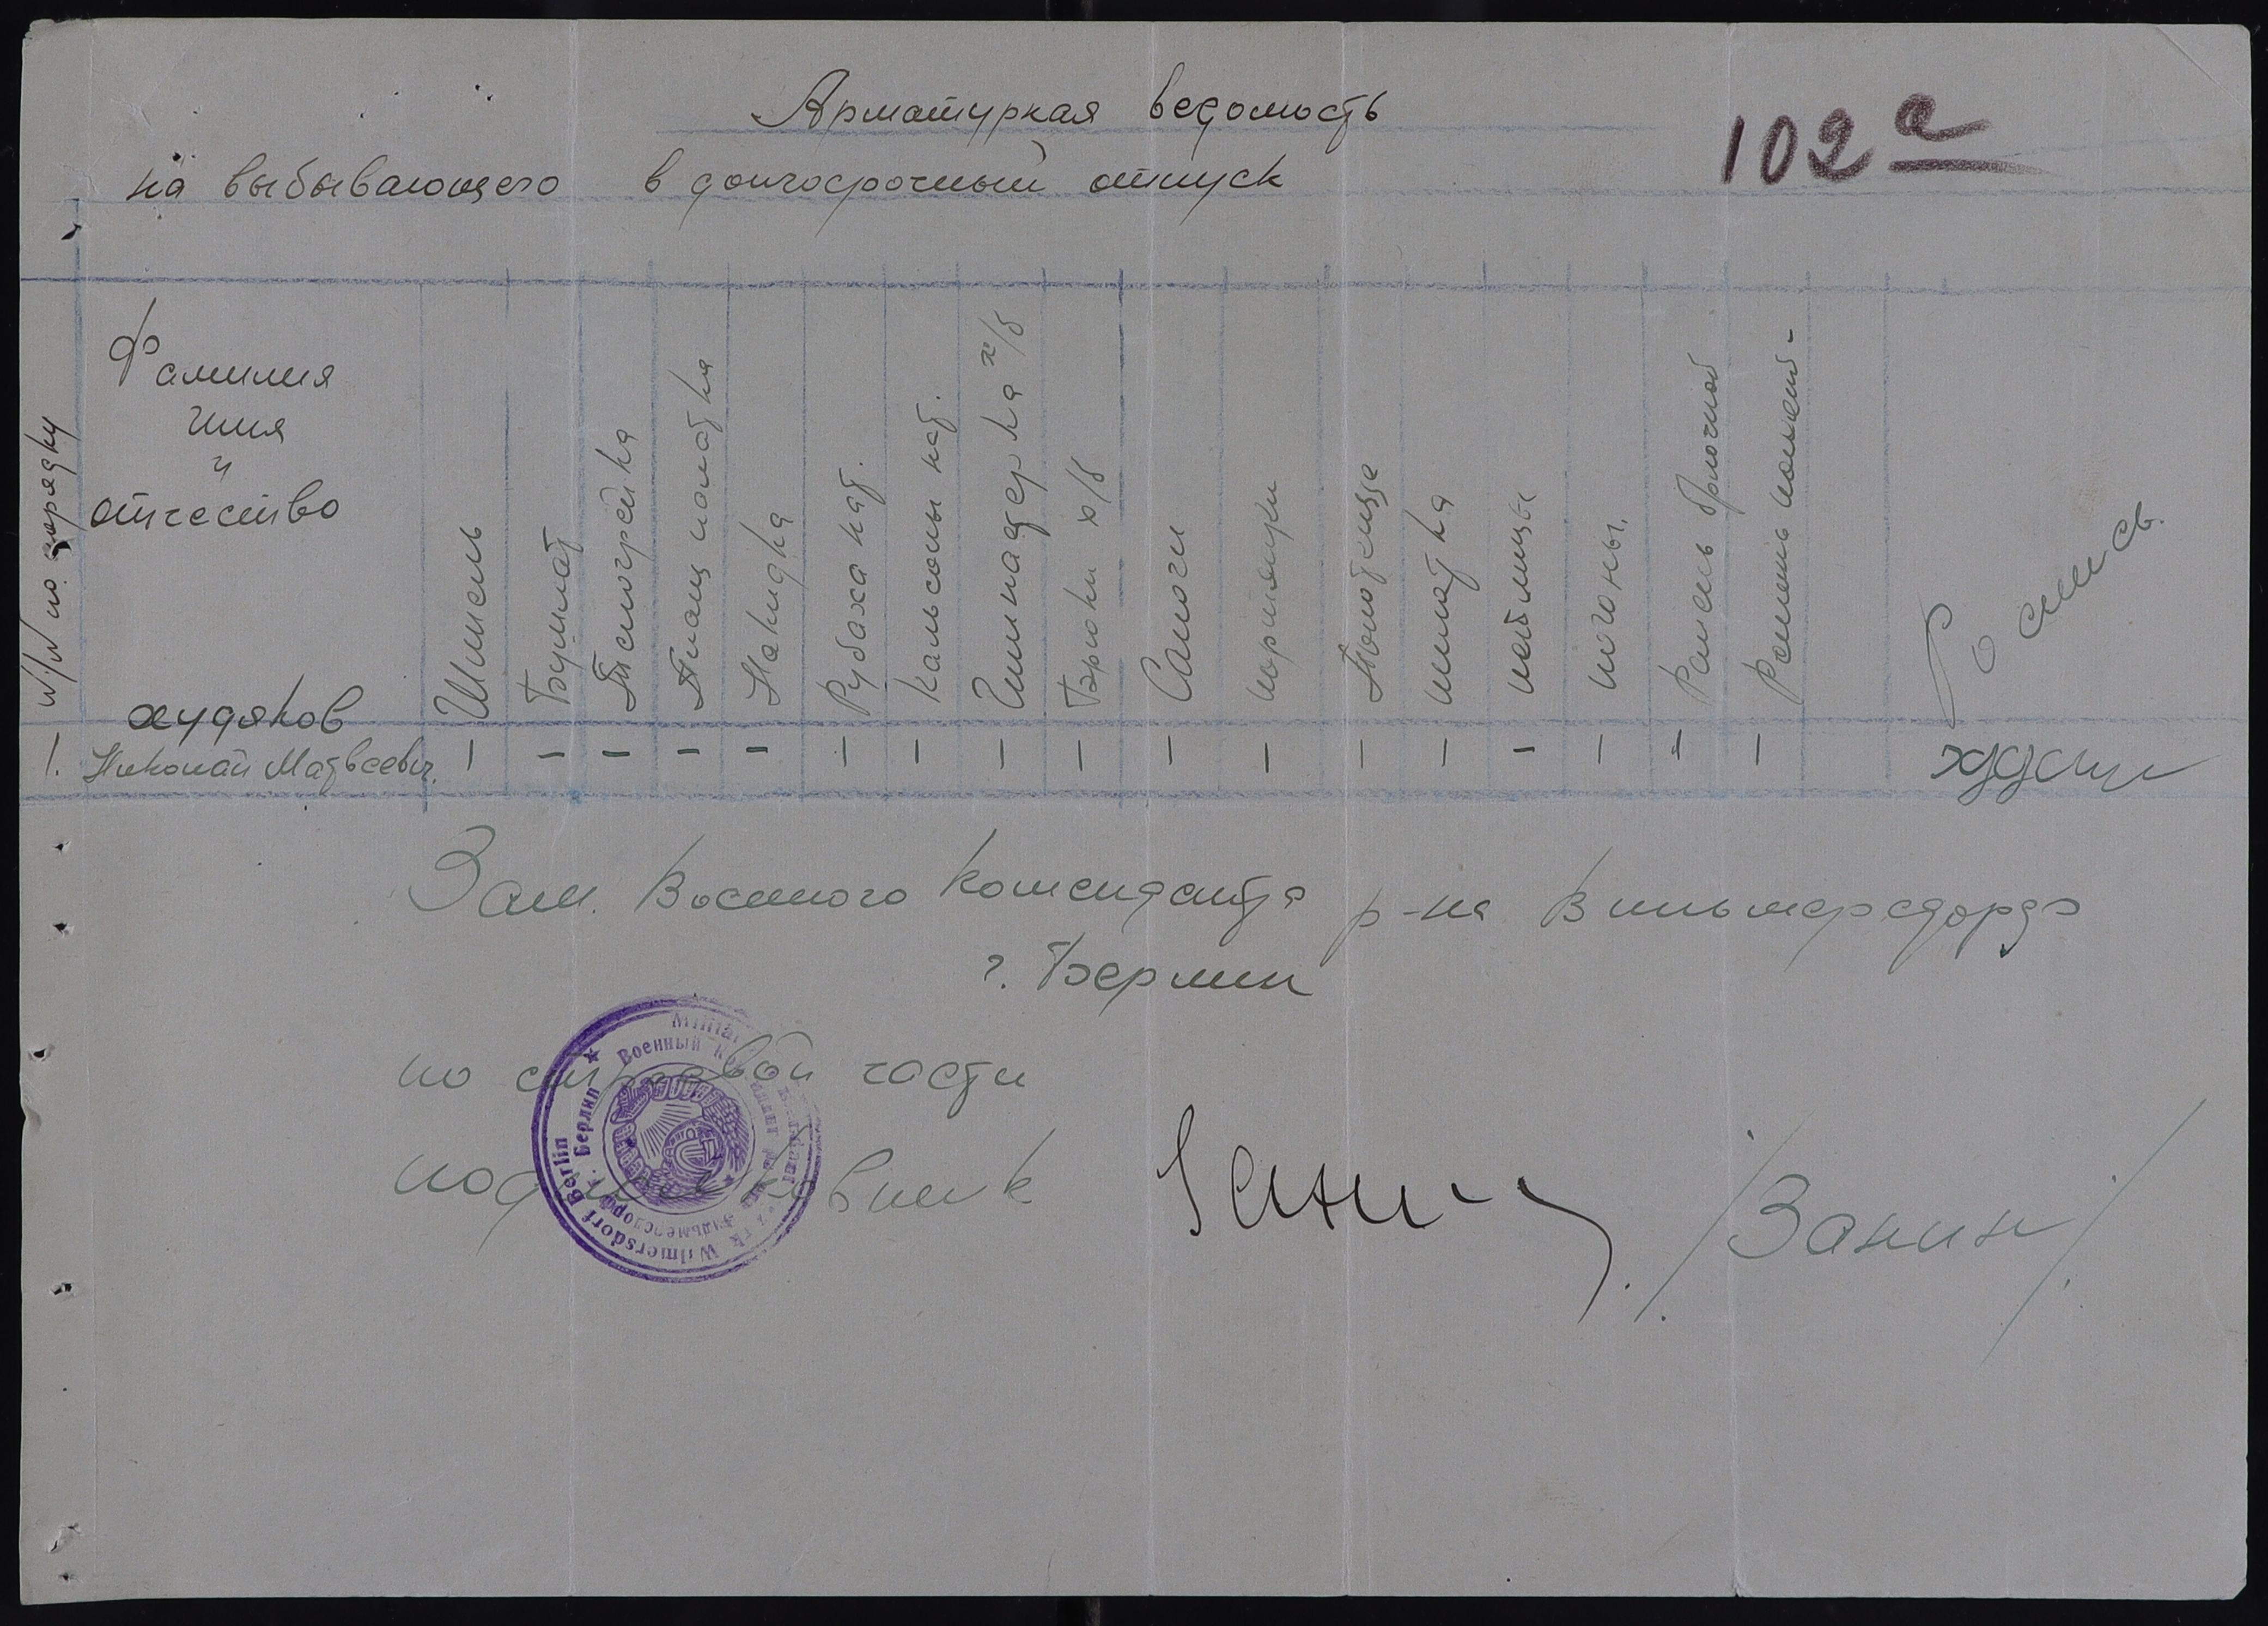 Арматуркая ведомость
102а
на выбывающего в долгосрочный отпуск
N/N по порядку
Фамилия
имя
и
отчество
Шинель
Бушлат
Телогрейка
Плащ палатка
Накидка
Рубаха нат.
Кальсоны нат.
Гимнастерка х/б
Брюки х/б
Сапоги
портянки
Полотенце
шапка
петлицы
погоны.
Ремень брючной
Ремень поясной-
Роспись.
1. Худяков Николай Матвеевич. 1 – – – – 1 1 1 1 1 1 1 1 – 1 – 1
Зам. Военного Коменданта р-на Вильмерсдорф
г. Берлин
по строевой части
подполковник Занин /Занин/
Militär
Bezirk Wilmersdorf Berlin
Военный Комендант района Вильмерсдорф г. Берлин